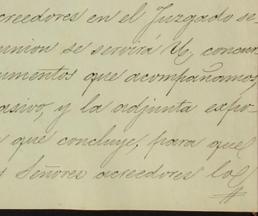 creedores en el Juzgado se-
union se servirá V, concur
umentos que acompañamos,
asivo, y la adjunta expo
que concluye, para que
Señores acreedores los